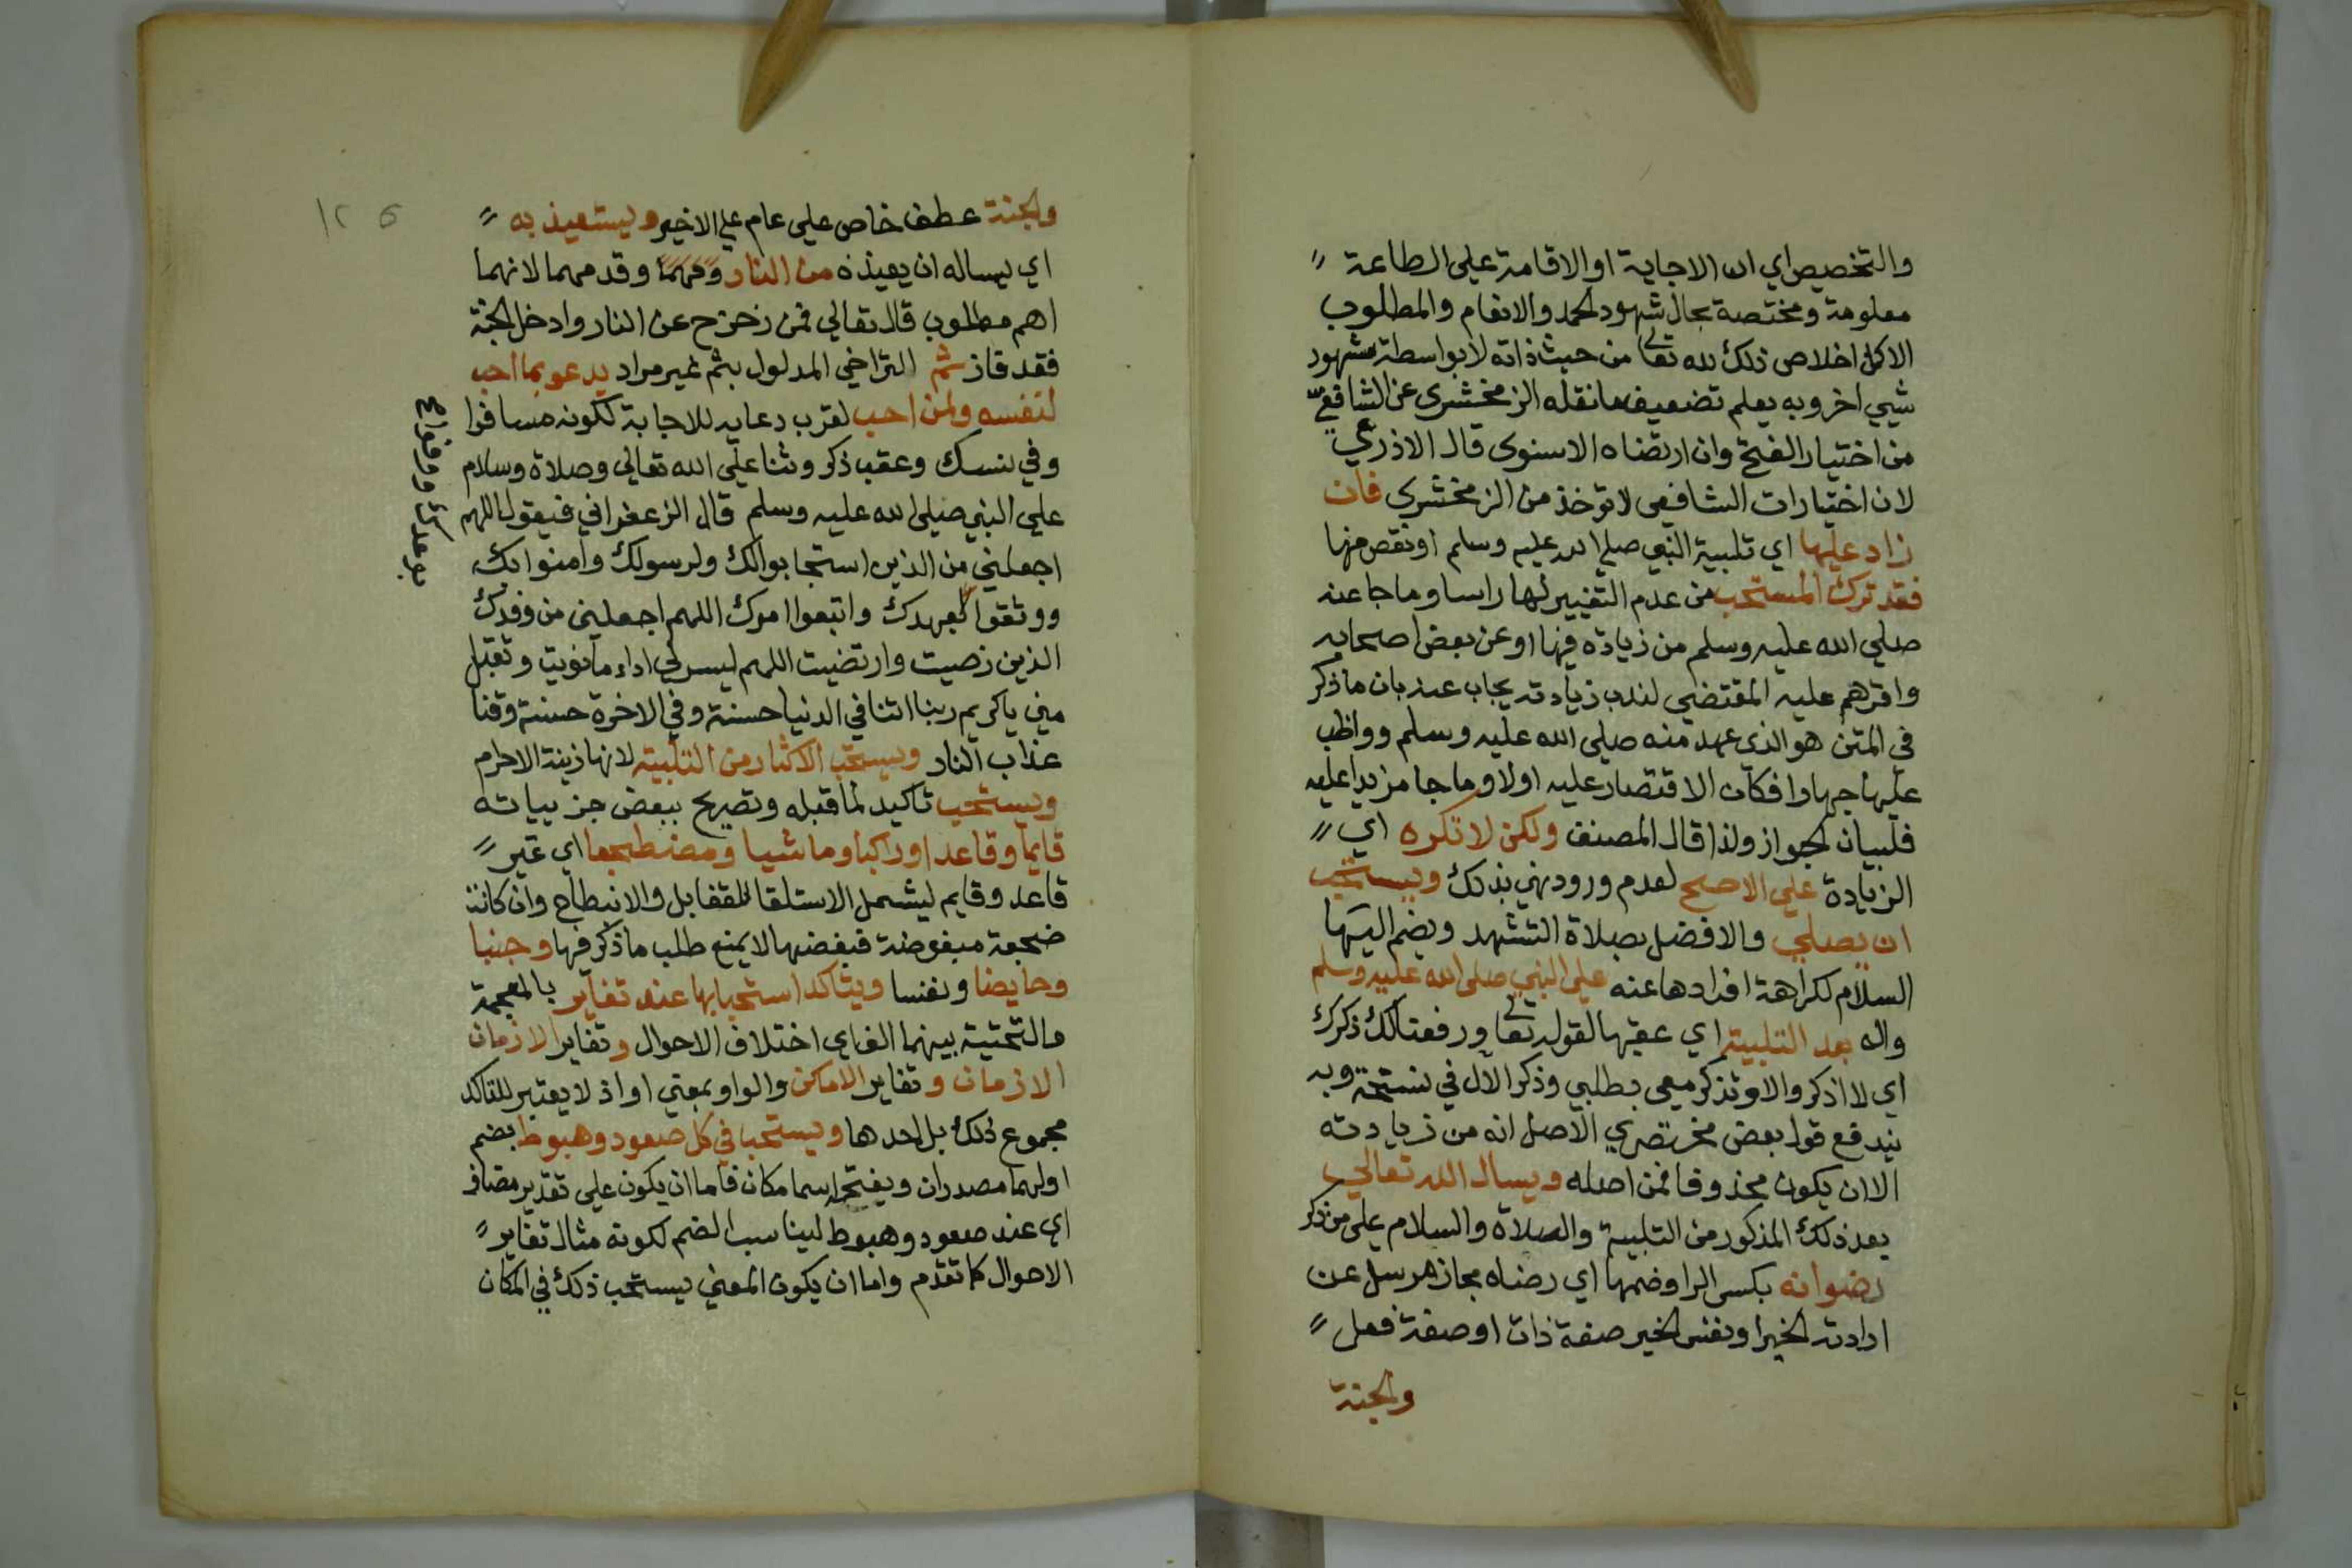 والتخصيص اي ان الاجابة او الاقامة علي الطاعة
معلومة ومختصة بحال شهود الحمد والانعام والمطلوب
الاكمل اخلاص ذلك لله تعالى من حيث ذاته لا بواسطة شهود
شيي اخر وبه يعلم تضعيف ما نقله الزمخشرى عن الشافعي
من اختيار الفتح وان ارتضاه الاسنوى قال الاذرعي
لان اختيارات الشافعي لا توخذ من الزمخشرى فان
زاد عليها اي تلبية النبي صلي الله عليه وسلم او نقص منها
فقد ترك المستحب من عدم التغيير لها راسا وما جا عنه
صلي الله عليه وسلم من زيادة فيها او عن بعض اصحابه
واقرهم عليه المقتضي لندب زيادته يجاب عنه بان ما ذكر
في المتن هو الذي عهد منه صلي الله عليه وسلم وواظب
عليها جهارا فكان الاقتصار عليه اولا وما جا مزيدا عليه
فلبيان الجواز ولذا قال المصنف ولكن لا تكره اي
الزيادة علي الاصح لعدم ورود نهي بذلك ويستحب
ان يصلي والافضل بصلاة التشهد ويضم اليها
السلام لكراهة افرادها عنه علي النبي صلى الله عليه وسلم
واله بعد التلبية اي عقبها لقوله تعالى ورفعنا لك ذكرك
اي لا اذكر والا وتذكر معي بطلبي وذكر الال في نسخة وبه
يندفع قول بعض مختصري الاصل انه من زيادته
الا ان يكون محذوفا فمن اصله ويسال الله تعالي
بعد ذلك المذكور من التلبية والصلاة والسلام علي من ذكر
رضوانه بكسر الرا وضمها اي رضاه مجاز مرسل عن
ارادته الخير او نفس الخير صفة ذات او صفة فعل
والجنة
والجنة عطف خاص علي عام علي الاخير ويستعيذ به
اي يساله ان يعيذه من النار وقدمهما لانهما
اهم مطلوب قال تعالي فمن زحزح عن النار وادخل الجنة
فقد فاز ثم التراخي المدلول بثم غير مراد يدعو بما احب
لنفسه ولمن احب لقرب دعايه للاجابة لكونه مسافرا
وفي نسك وعقب ذكر وثنا علي الله تعالي وصلاة وسلام
علي النبي صلي الله عليه وسلم قال الزعفراني فيقول اللهم
اجعلني من الذين استجابوا لك ولرسولك وامنوا بك
ووثقوا بعهدك واتبعوا امرك اللهم اجعلني من وفدك
الذين رضيت وارتضيت اللهم يسر لي اداء ما نويت وتقبل
مني يا كريم ربنا اتنا في الدنيا حسنة وفي الاخرة حسنة وقنا
عذاب النار ويستحب الاكثار من التلبية لانها زينة الاحرام
ويستحب تاكيد لما قبله وتصريح ببعض جزيياته
قايما وقاعدا وراكبا وماشيا ومضطجعا اي غير
قاعد وقايم ليشمل الاستلقا للقفا بل والانبطاح وان كانت
ضجعة مبغوضة فبغضها لا يمنع طلب ما ذكر فيها وجنبا
وحايضا ونفسا ويتاكد استحبابها عند تغاير بالمعجمة
والتحتية بينهما الف اي اختلاف الاحوال وتغاير الازمان
الازمان وتغاير الاماكن والواو بمعني او اذ لا يعتبر للتاكد
مجموع ذلك بل احدها ويستحب في كل صعود وهبوط بضم
اولهما مصدران وبفتحه اسما مكان فاما ان يكون علي تقدير مضاف
اي عند صعود وهبوط ليناسب الضم لكونه مثال تغاير
الاحوال كما تقدم واما ان يكون المعني يستحب ذلك في المكان